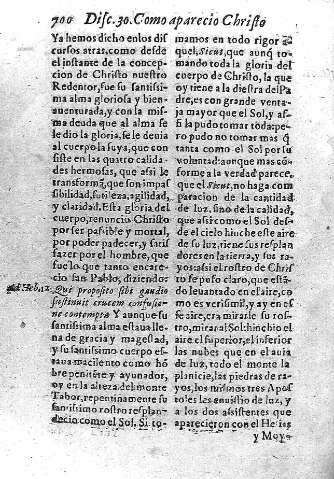 700 Disc.30. Como aparecio Christo
Ya hemos dicho en los dis
cursos atras, como desde
el instante de la concepcion
de Christo nuestro
Redentor, fue su santissima
alma gloriosa y bien-
auenturada, y con la mis-
ma deuda que al alma se
le dio la gloria, se le deuia
al cuerpo la suya, que con
siste en las quatro calida
des hermosas, que assi le
transformã, que son impas
sibilidad, sutileza, agilidad,
y claridad. Esta gloria del
cuerpo, renuncio Christo
por ser passible y mortal,
por poder padecer, y satis
fazer por el hombre, que
fue lo que tanto encare-
cio san Pablo, diziendo:
Heb.12. Qui proposito sibi gaudio
sustinuit crucem confusio-
ne contempta. Y aunque su
santissima alma estaua lle-
na de gracia y magestad,
y su santissimo cuerpo es-
taua macilento como hõ
bre penitẽte y ayunador,
oy en la alteza del monte
Tabor, repentinamente su
santissimo rostro resplan-
decio como el Sol. Si to-
mamos en todo rigor a
quel, Sicut, que aunq̃ to-
mando toda la gloria del
cuerpo de Christo, la que
oy tiene a la diestra del Pa
dre, es con grande venta-
ja mayor que el Sol, y as-
si la pudo tomar toda, pe-
ro pudo no tomar mas q̃
tanta como el Sol por su
voluntad: aunque mas cõ-
forme a la verdad parece,
que el Sicut, no haga com
paracion de la cantidad
de luz, sino de la calidad,
que assi como el Sol des-
de el cielo hinche este aire
de su luz, tiene sus resplan
dores en la tierra, y sus ra-
yos: assi el rostro de Chris
to fue poso claro, que estã-
do leuantado en aire, co-
mo es verisimil, y ay en es
se aire, era mirarle su ros-
tro, mirar al Sol: hinchio el
aire el superior, el inferior
las nubes que en el auia
de luz, todo el monte la
planicie, las piedras de ra-
yos, los mismos tres Apos
toles les enuistio de luz, y
a los dos assistentes que
aparecieron con el Helias
y Moy-